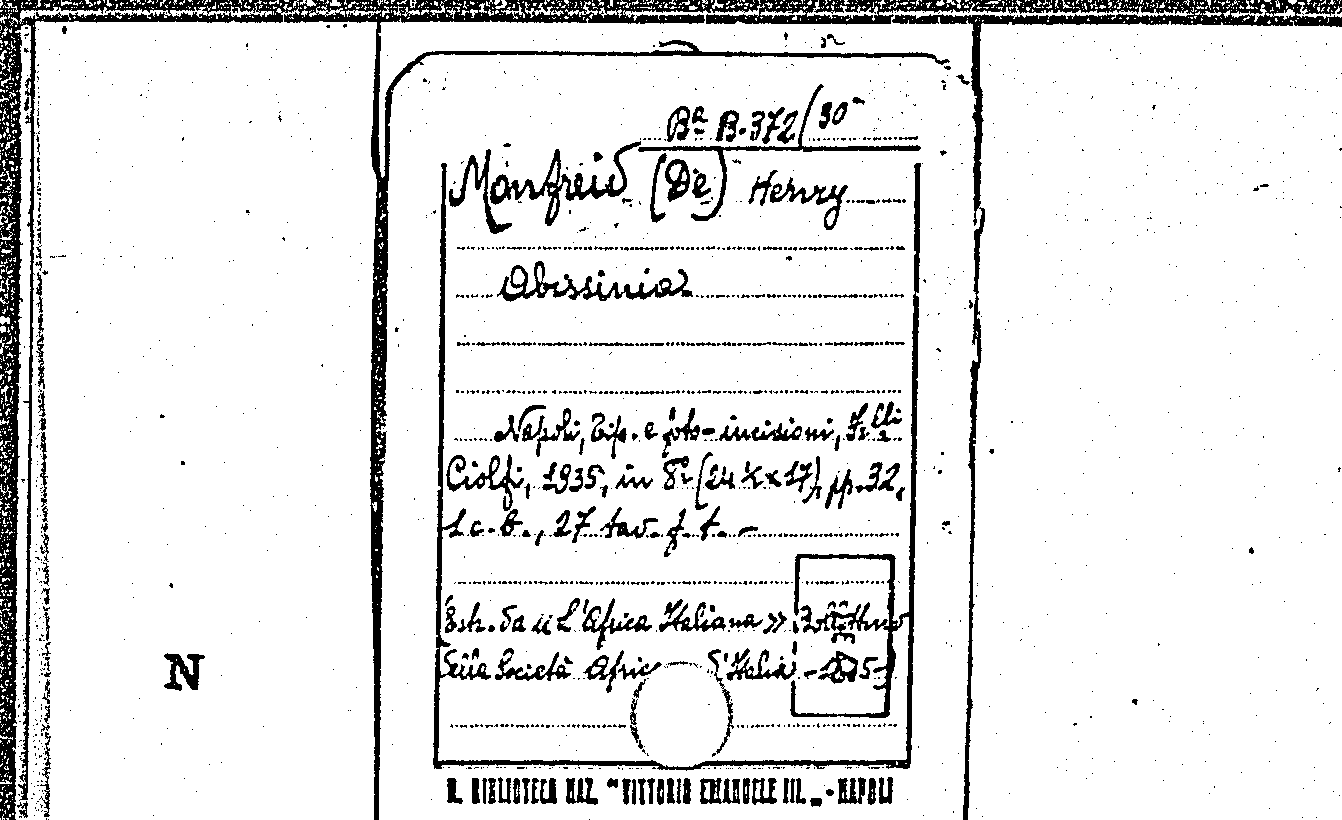 Bª B.372/30-
Monfreid (De) Henry
Abissinia
Napoli, Tip. e foto-incisioni, F.lli
Ciolfi, 1935, in 8º (24 ½ x 17), pp. 32,
1 c. b., 27 tav. f. t. -
Estr. da «L'Africa Italiana» Bollettino
della Società Afric d'Italia - 1935-
N
R. BIBLIOTECA NAZ. "VITTORIO EMANUELE III. „ - NAPOLI